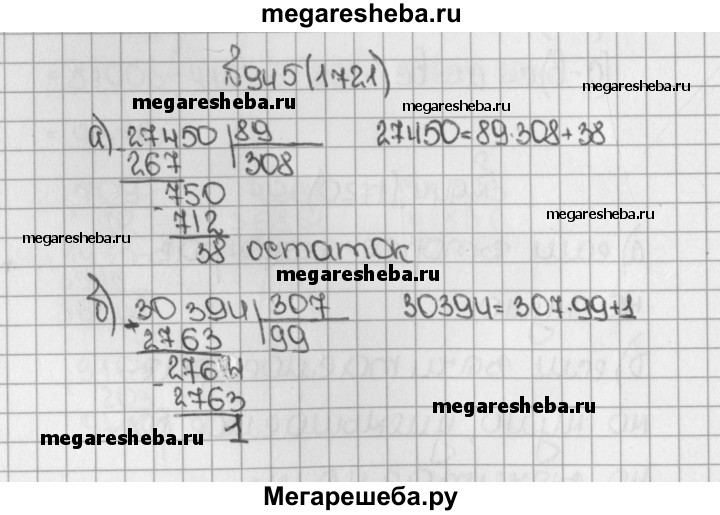 megaresheba.ru
№945(1721)
megaresheba.ru
megaresheba.ru
а) 27450 | 89 27450=89·308+38
- 267 308
750
- 712
38 остаток
megaresheba.ru
megaresheba.ru
megaresheba.ru
б) 30394 | 307 30394=307·99+1
- 2763 99
2764
- 2763
1
megaresheba.ru
megaresheba.ru
Мегарешеба.ру